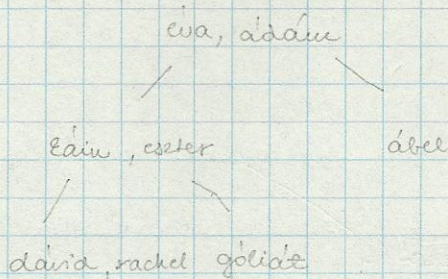 éva, ádám
káin, eszter ábel
dávid, rachel góliát